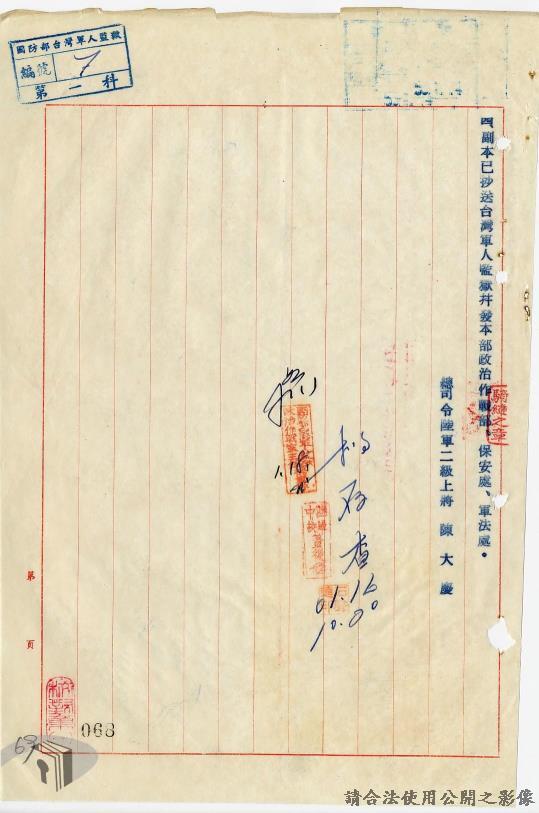 國防部台灣軍人監獄
編號 7
第一科
四、副本已抄送台灣軍人監獄并發本部政治作戰部、保安處、軍法處。
總司令陸軍二級上將 陳大慶
騎縫之章
擬存查
01.16
10.00
1.18.
第 頁
068
69
請合法使用公開之影像